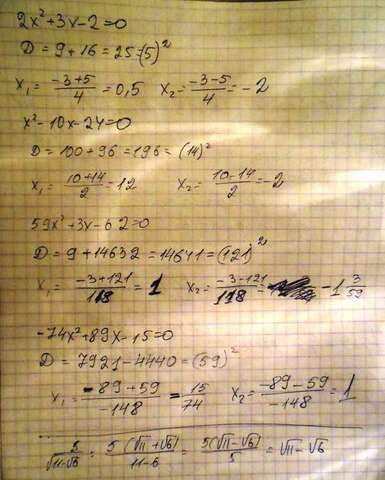 2x²+3x-2=0
D = 9+16 = 25=(5)²
x₁ = (-3+5)/4 = 0,5 x₂ = (-3-5)/4 = -2
x²-10x-24=0
D = 100+96 = 196 = (14)²
x₁ = (10+14)/2 = 12 x₂ = (10-14)/2 = -2
59x²+3x-62=0
D = 9+14632 = 14641 = (121)²
x₁ = (-3+121)/118 = 1 x₂ = (-3-121)/118 = -1 3/59
-74x²+89x-15=0
D = 7921-4440=(59)²
x₁ = (-89+59)/-148 = 15/74 x₂ = (-89-59)/-148 = 1
5/(√11-√6) = 5(√11+√6)/(11-6) = 5(√11-√6)/5 = √11-√6